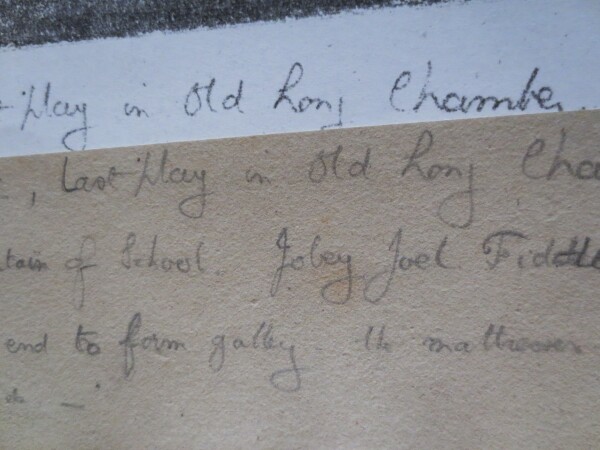 Play in Old Long Chamber.
, Last Play in Old Long Cha
tain of School. Jobey Joel Fiddle
end to form galley the mattresses